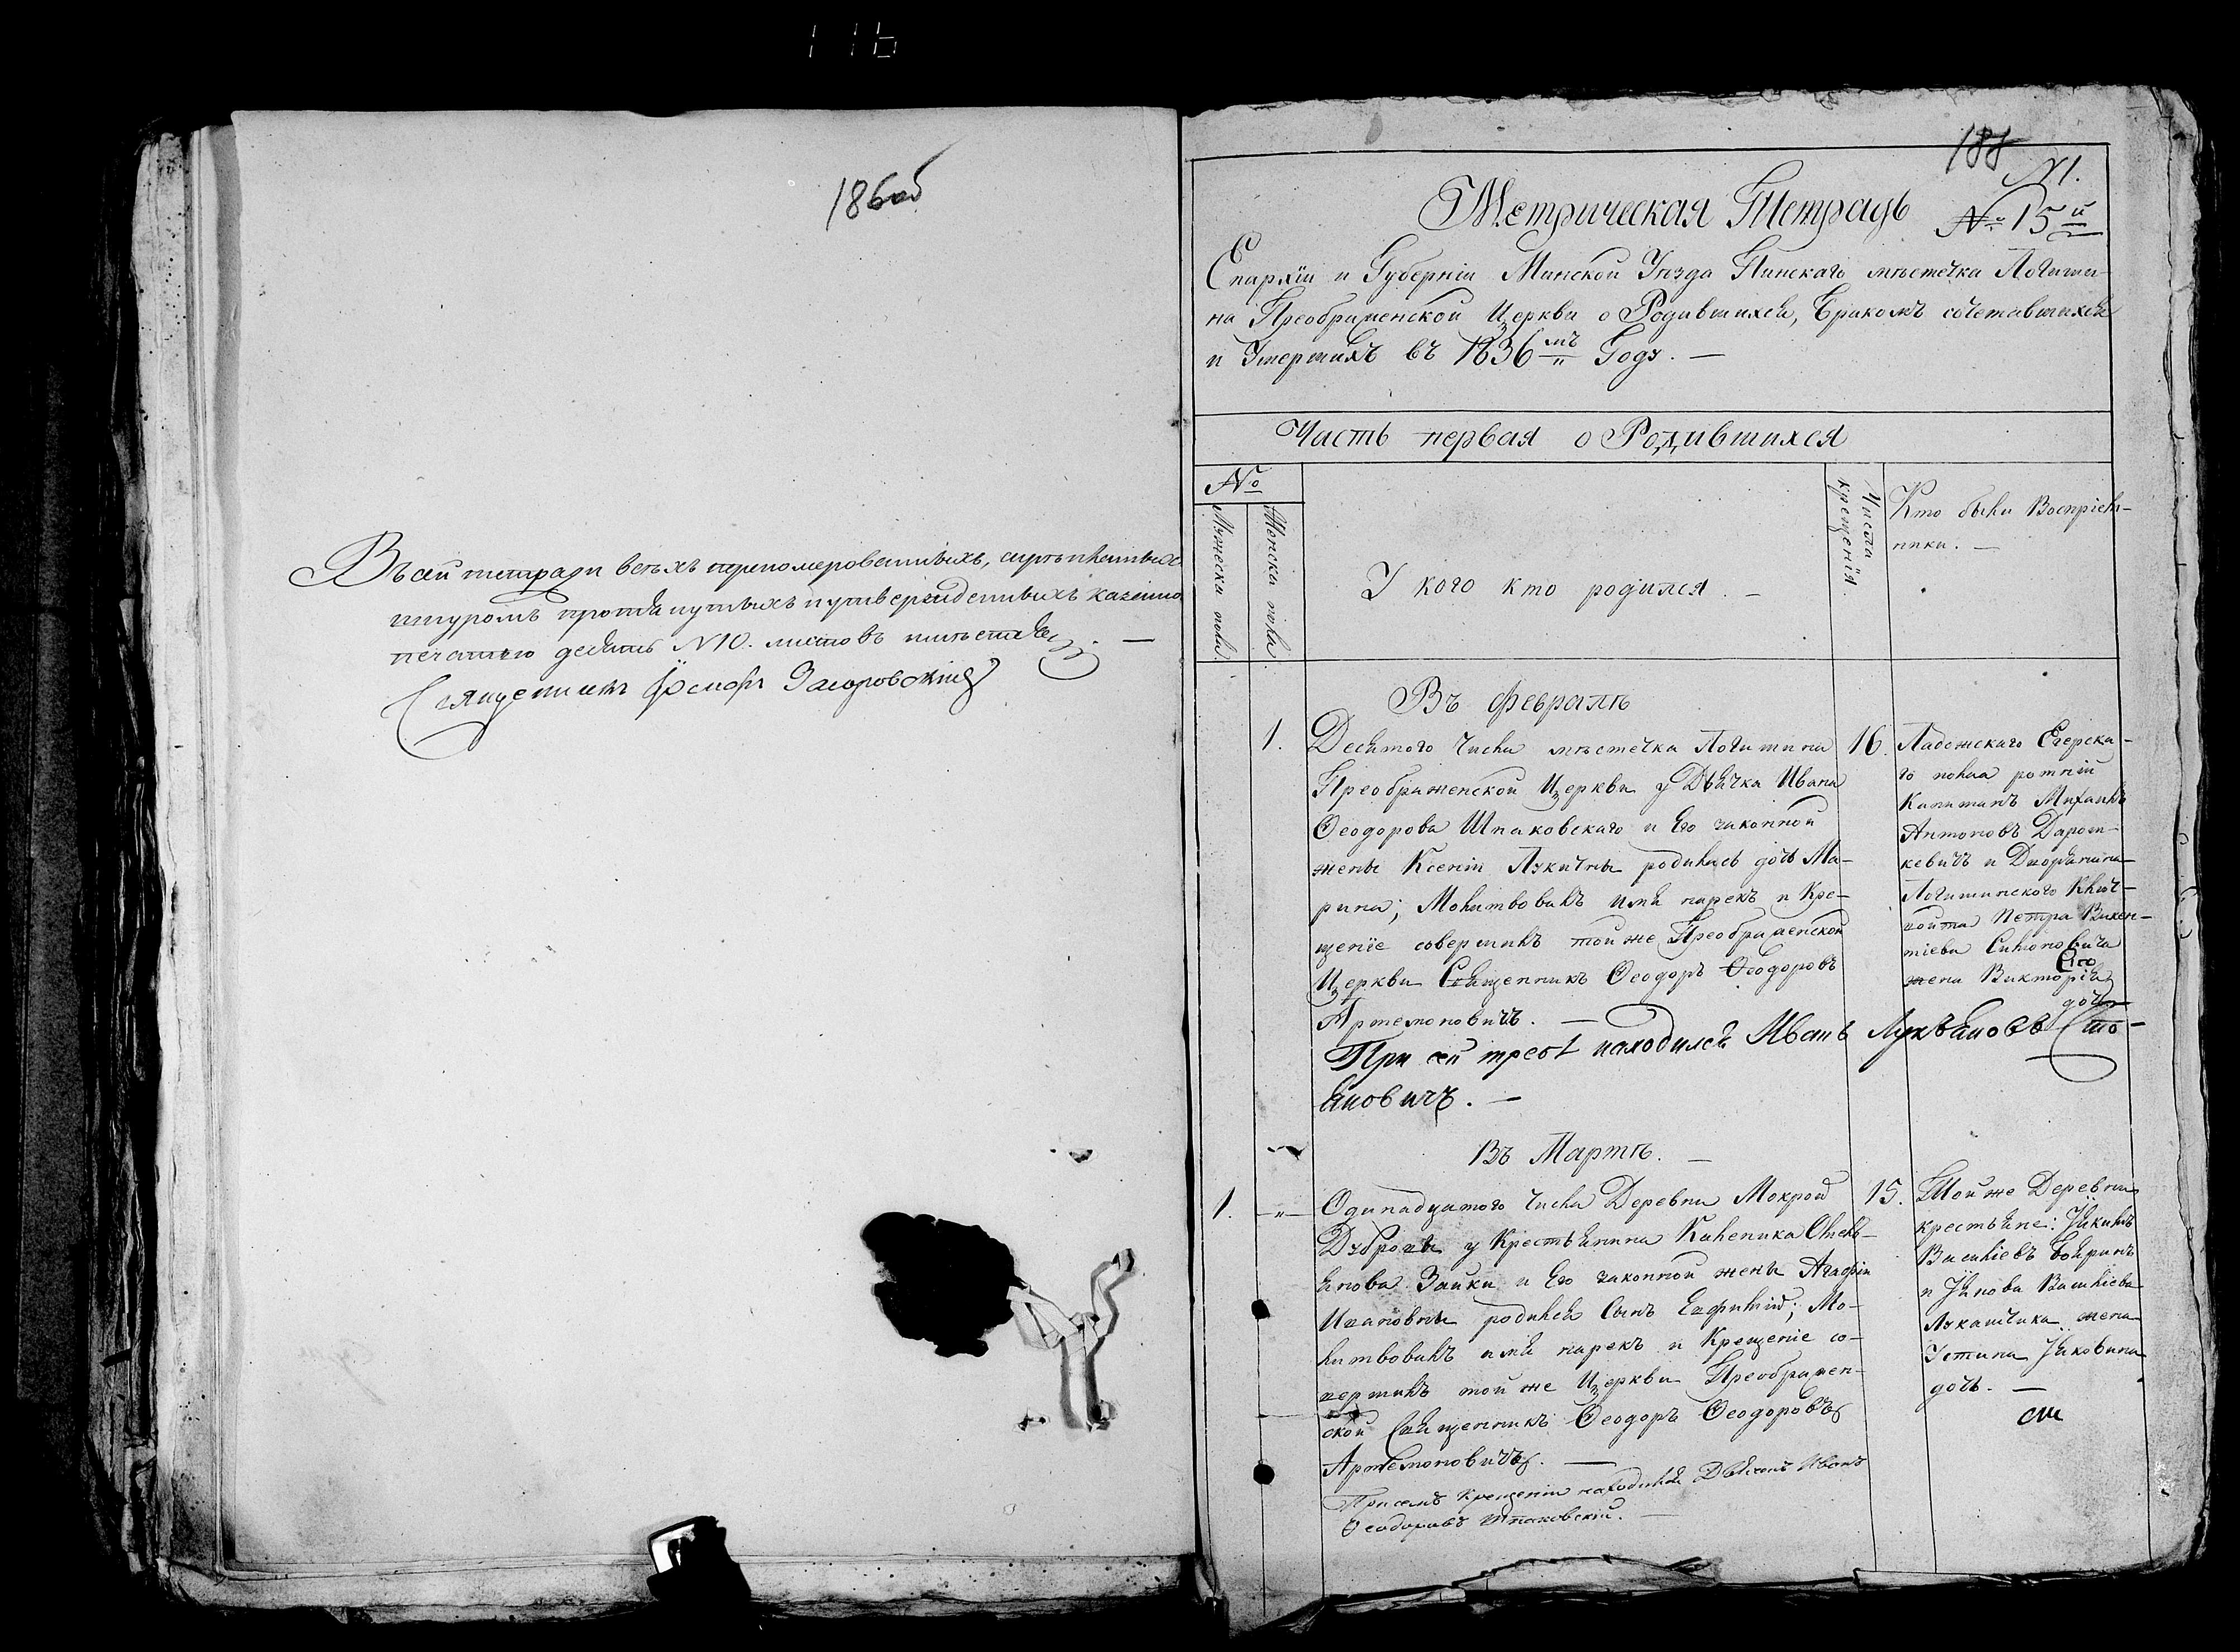 116
186об
Въ сей тетради всѣхъ перномерованныхъ, скрѣпленныхъ
шнуромъ протянутыхъ и утвержденныхъ казенною
печатью десять N 10. листовъ имѣется. —
Священникъ Загоровскій
188
N 1.
Метрическая Тетрадь № 15й
Епархіи и Губерніи Минской Уѣзда Пинскаго мѣстечка Логиши-
на Преображенской Церкви о Родившихся, Бракомъ сочетавшихся
и Умершихъ въ 1836мъ Году. —
Часть первая о Родившихся
№
Мужеска пола.
Женска пола.
У кого кто родился. —
Числа крещенія.
Кто были Воспріем-
ники. —
Въ Февралѣ
1.
Десятого числа мѣстечка Логишина
Преображенской Церкви у Дьячка Ивана
Ѳеодорова Шпаковскаго и Его законной
жены Ксеніи Лукичны родилась дочь Ма-
рина; Молитвовалъ имя нарекъ и Кре-
щеніе совершилъ той же Преображенской
Церкви Священникъ Ѳеодоръ Ѳеодоровъ
Артемоновичъ. —
16.
Ладожскаго Егерска-
го полка
Капитанъ Михаилъ
Антоновъ
кевичъ и Дворянина
Логишинского Ключ-
войта Петра Викен-
тіева
Его
жена Викторія
дочь
При сей требѣ находился Иванъ Лукьяновъ Сто-
яновичъ. —
Въ Мартѣ. —
1.
Одинадцатого числа Деревни Мокрой
Дубровы у Крестьянина Каленика Омель-
янова Заики и Его законной жены Агафіи
Ивановны родился Сынъ Евфимій; Мо-
литвовалъ имя нарекъ и Крещеніе со-
вершилъ той же Церкви Преображен-
ской Священникъ Ѳеодоръ Ѳеодоровъ
Артемоновичъ. —
При семъ крещеніи находился Дьячокъ Иванъ
Ѳеодоровъ Шпаковскій. —
15.
Той же Деревни
крестьяне: Якимъ
Василіевъ Бояринъ
и Якова Василіева
Лукашика жена
Устина Яковина
дочь. —